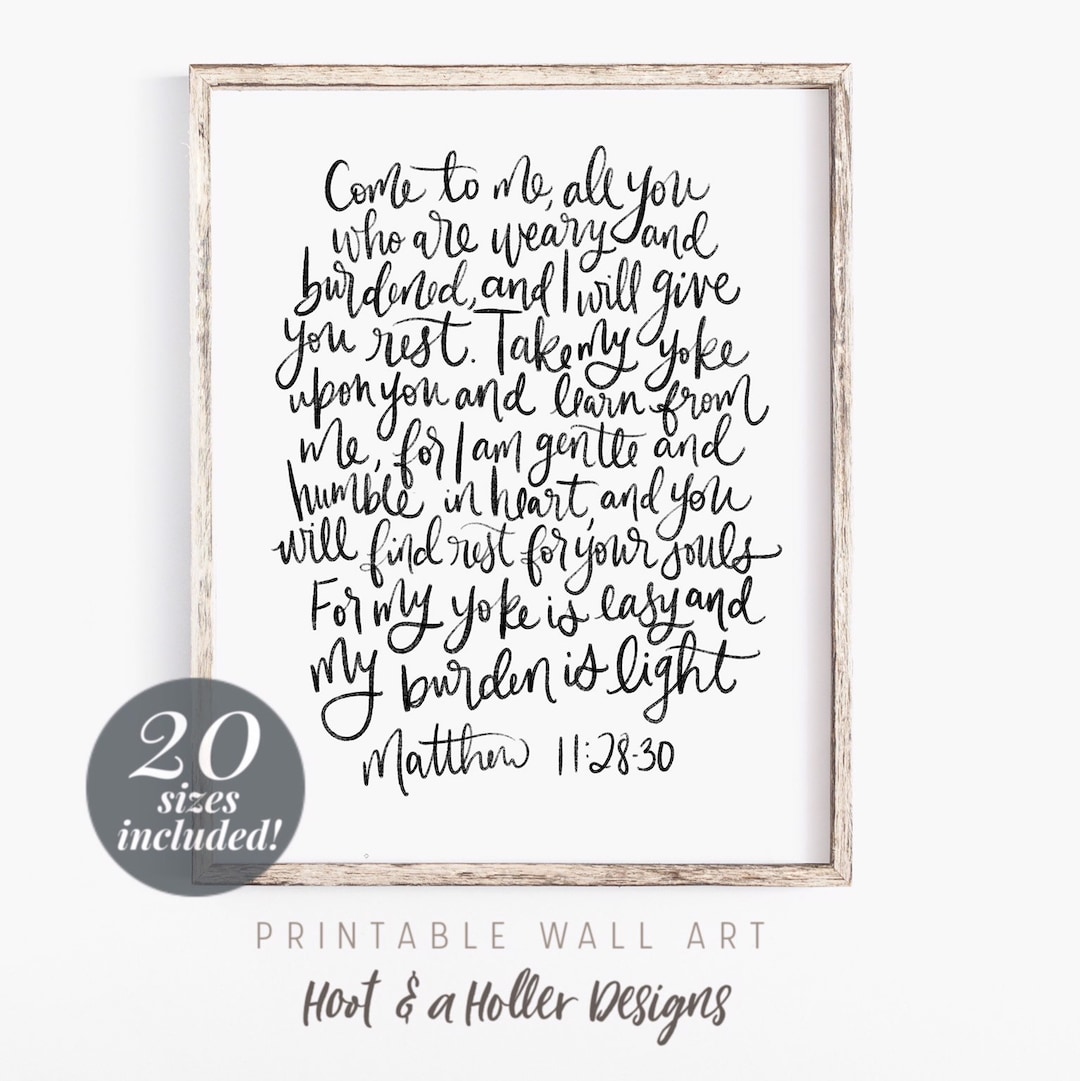 Come to me, all you
who are weary and
burdened, and I will give
you rest. Take my yoke
upon you and learn from
me, for I am gentle and
humble in heart, and you
will find rest for your souls
For my yoke is easy and
my burden is light
Matthew 11:28-30
20
sizes
included!
PRINTABLE WALL ART
Hoot & a Holler Designs